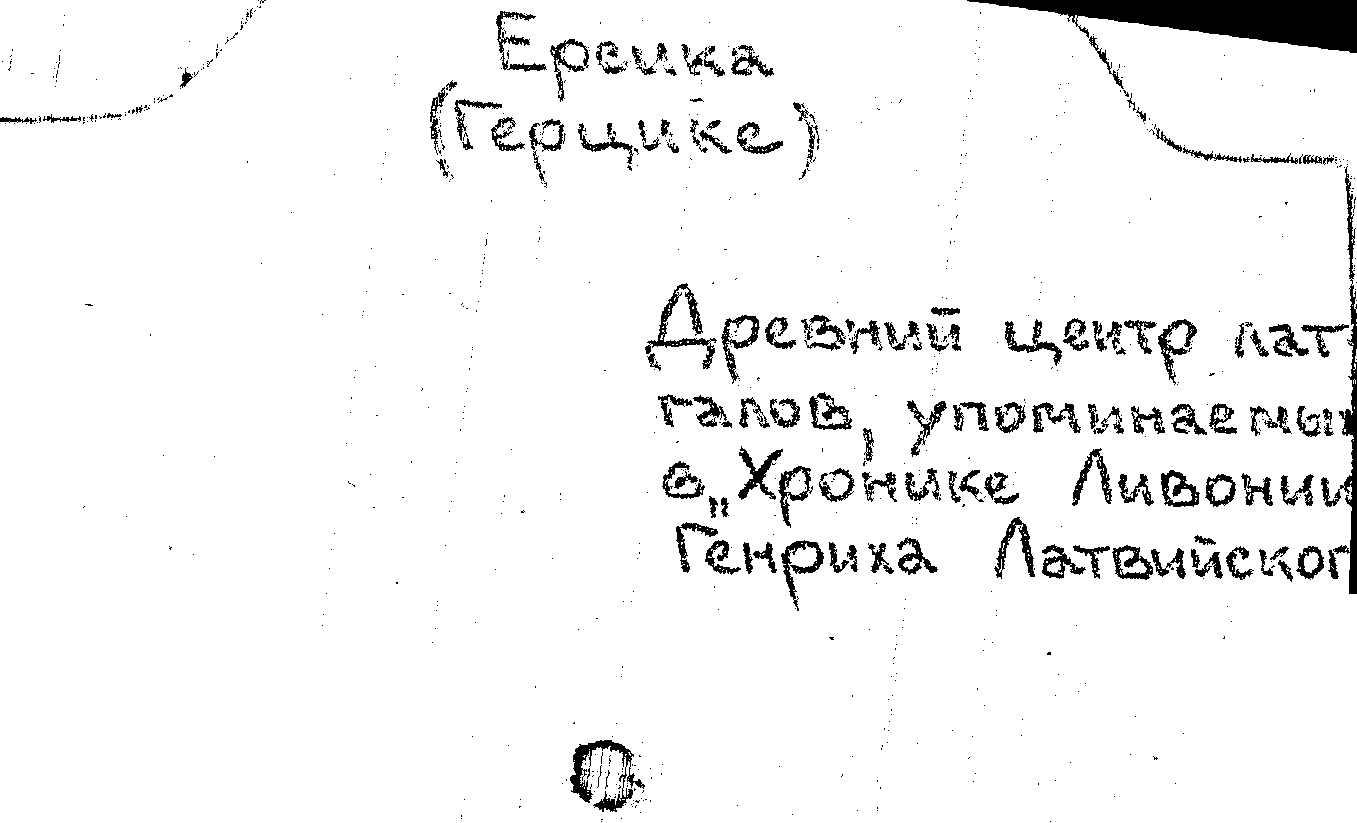 Ерсика
(Герцике)
Древний центр лат-
галов, упоминаемый
в „Хронике Ливонии
Генриха Латвийског